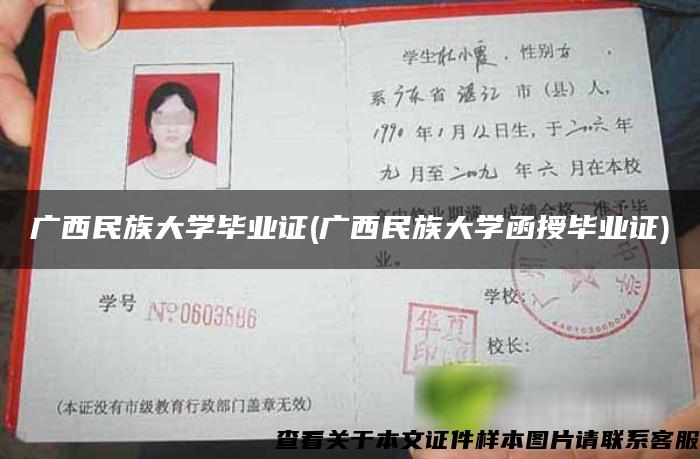 学生杜小霞，性别女，
系广东省湛江市（县）人，
1990年1月12日生，于二00六年
九月至二00九年六月在本校
准予毕
业。
广西民族大学毕业证(广西民族大学函授毕业证)
学号 №0603586
学校：
校长：
(本证没有市级教育行政部门盖章无效)
查看关于本文证件样本图片请联系客服